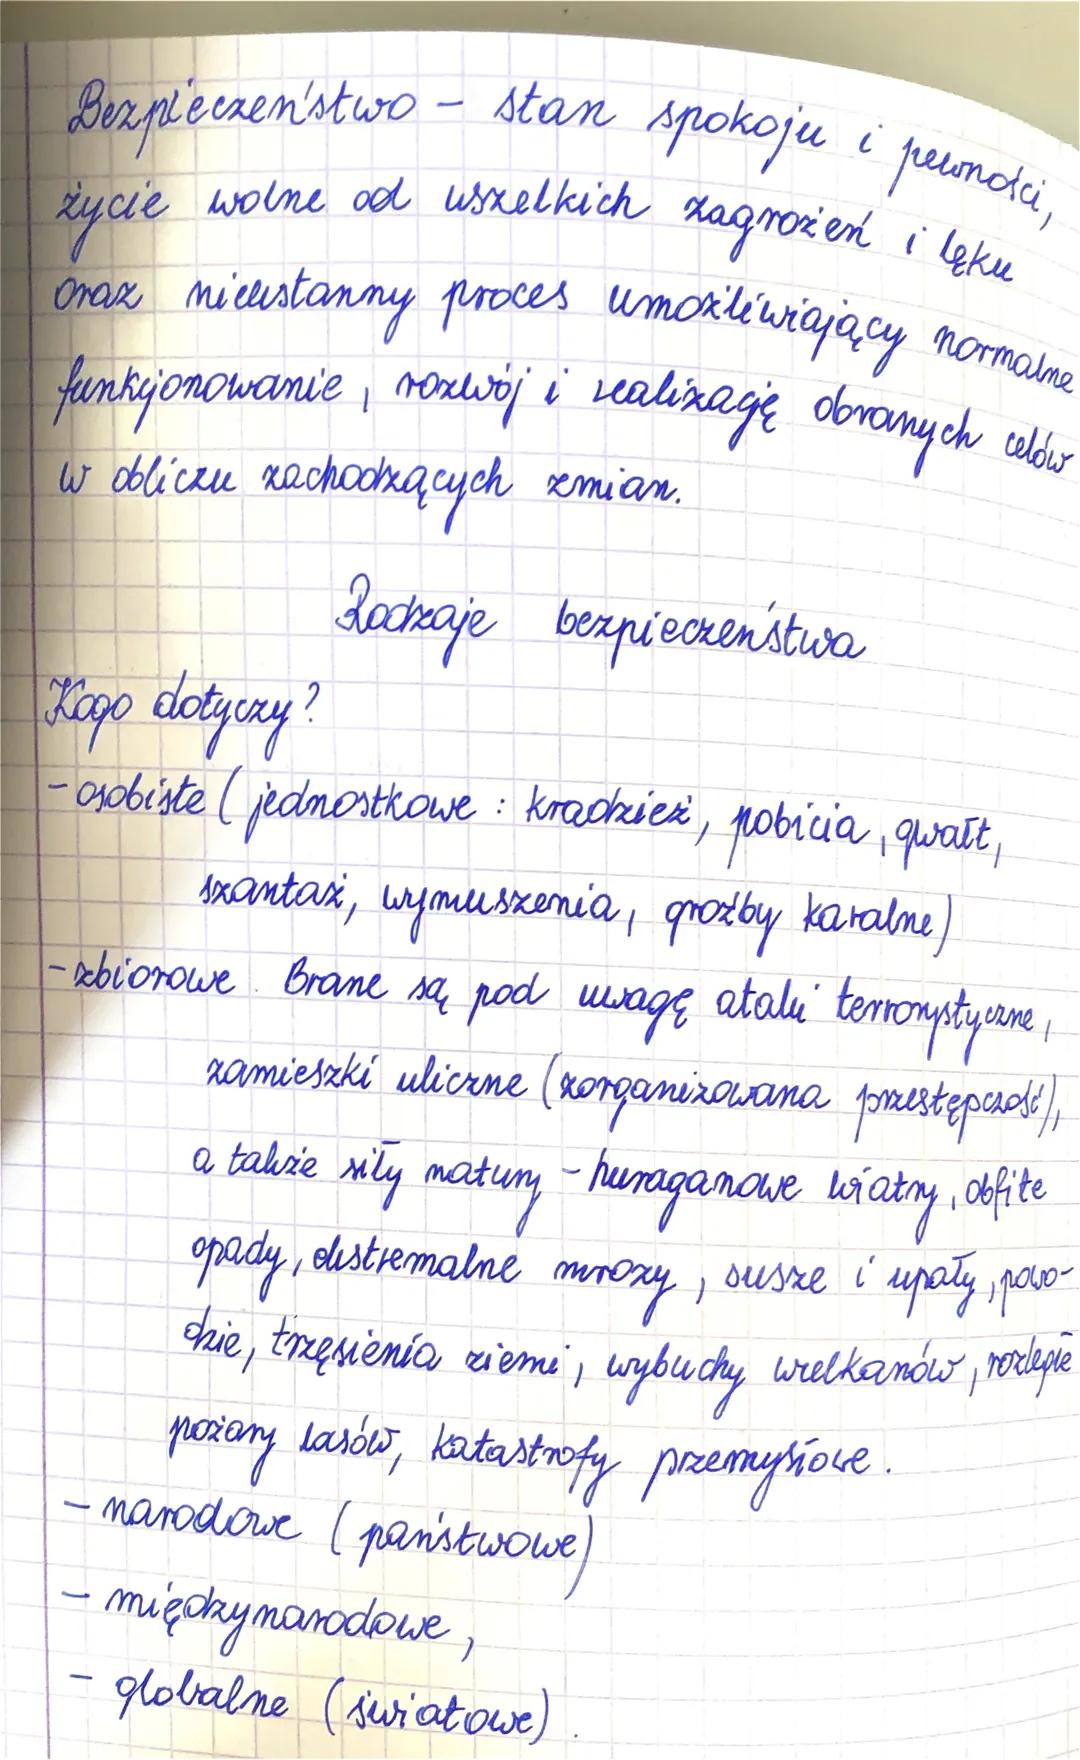 Bezpieczeństwo – stan spokoju i pewności,
życie wolne od wszelkich zagrożeń i lęku
oraz nieustanny proces umożliwiający normalne
funkcjonowanie, rozwój i realizację obranych celów
w obliczu zachodzących zmian.
Rodzaje bezpieczeństwa
Kogo dotyczy?
- osobiste (jednostkowe : kradzież, pobicia, gwałt,
szantaż, wymuszenia, groźby karalne)
- zbiorowe. Brane są pod uwagę ataki terrorystyczne,
zamieszki uliczne (zorganizowana przestępczość),
a także siły natury - huraganowe wiatry, obfite
opady, ekstremalne mrozy, susze i upały, powo-
dzie, trzęsienia ziemi, wybuchy wulkanów, rozległe
pożary lasów, katastrofy przemysłowe.
- narodowe (państwowe)
- międzynarodowe,
- globalne (światowe).